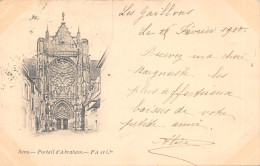 Les Gaillons
le 28 Février 1900.
Recevez ma chère
Marguerite les
plus affectueux
baisers de votre
petite amie.
Alice
Sens — Portail d'Abraham. — P. A et Cie